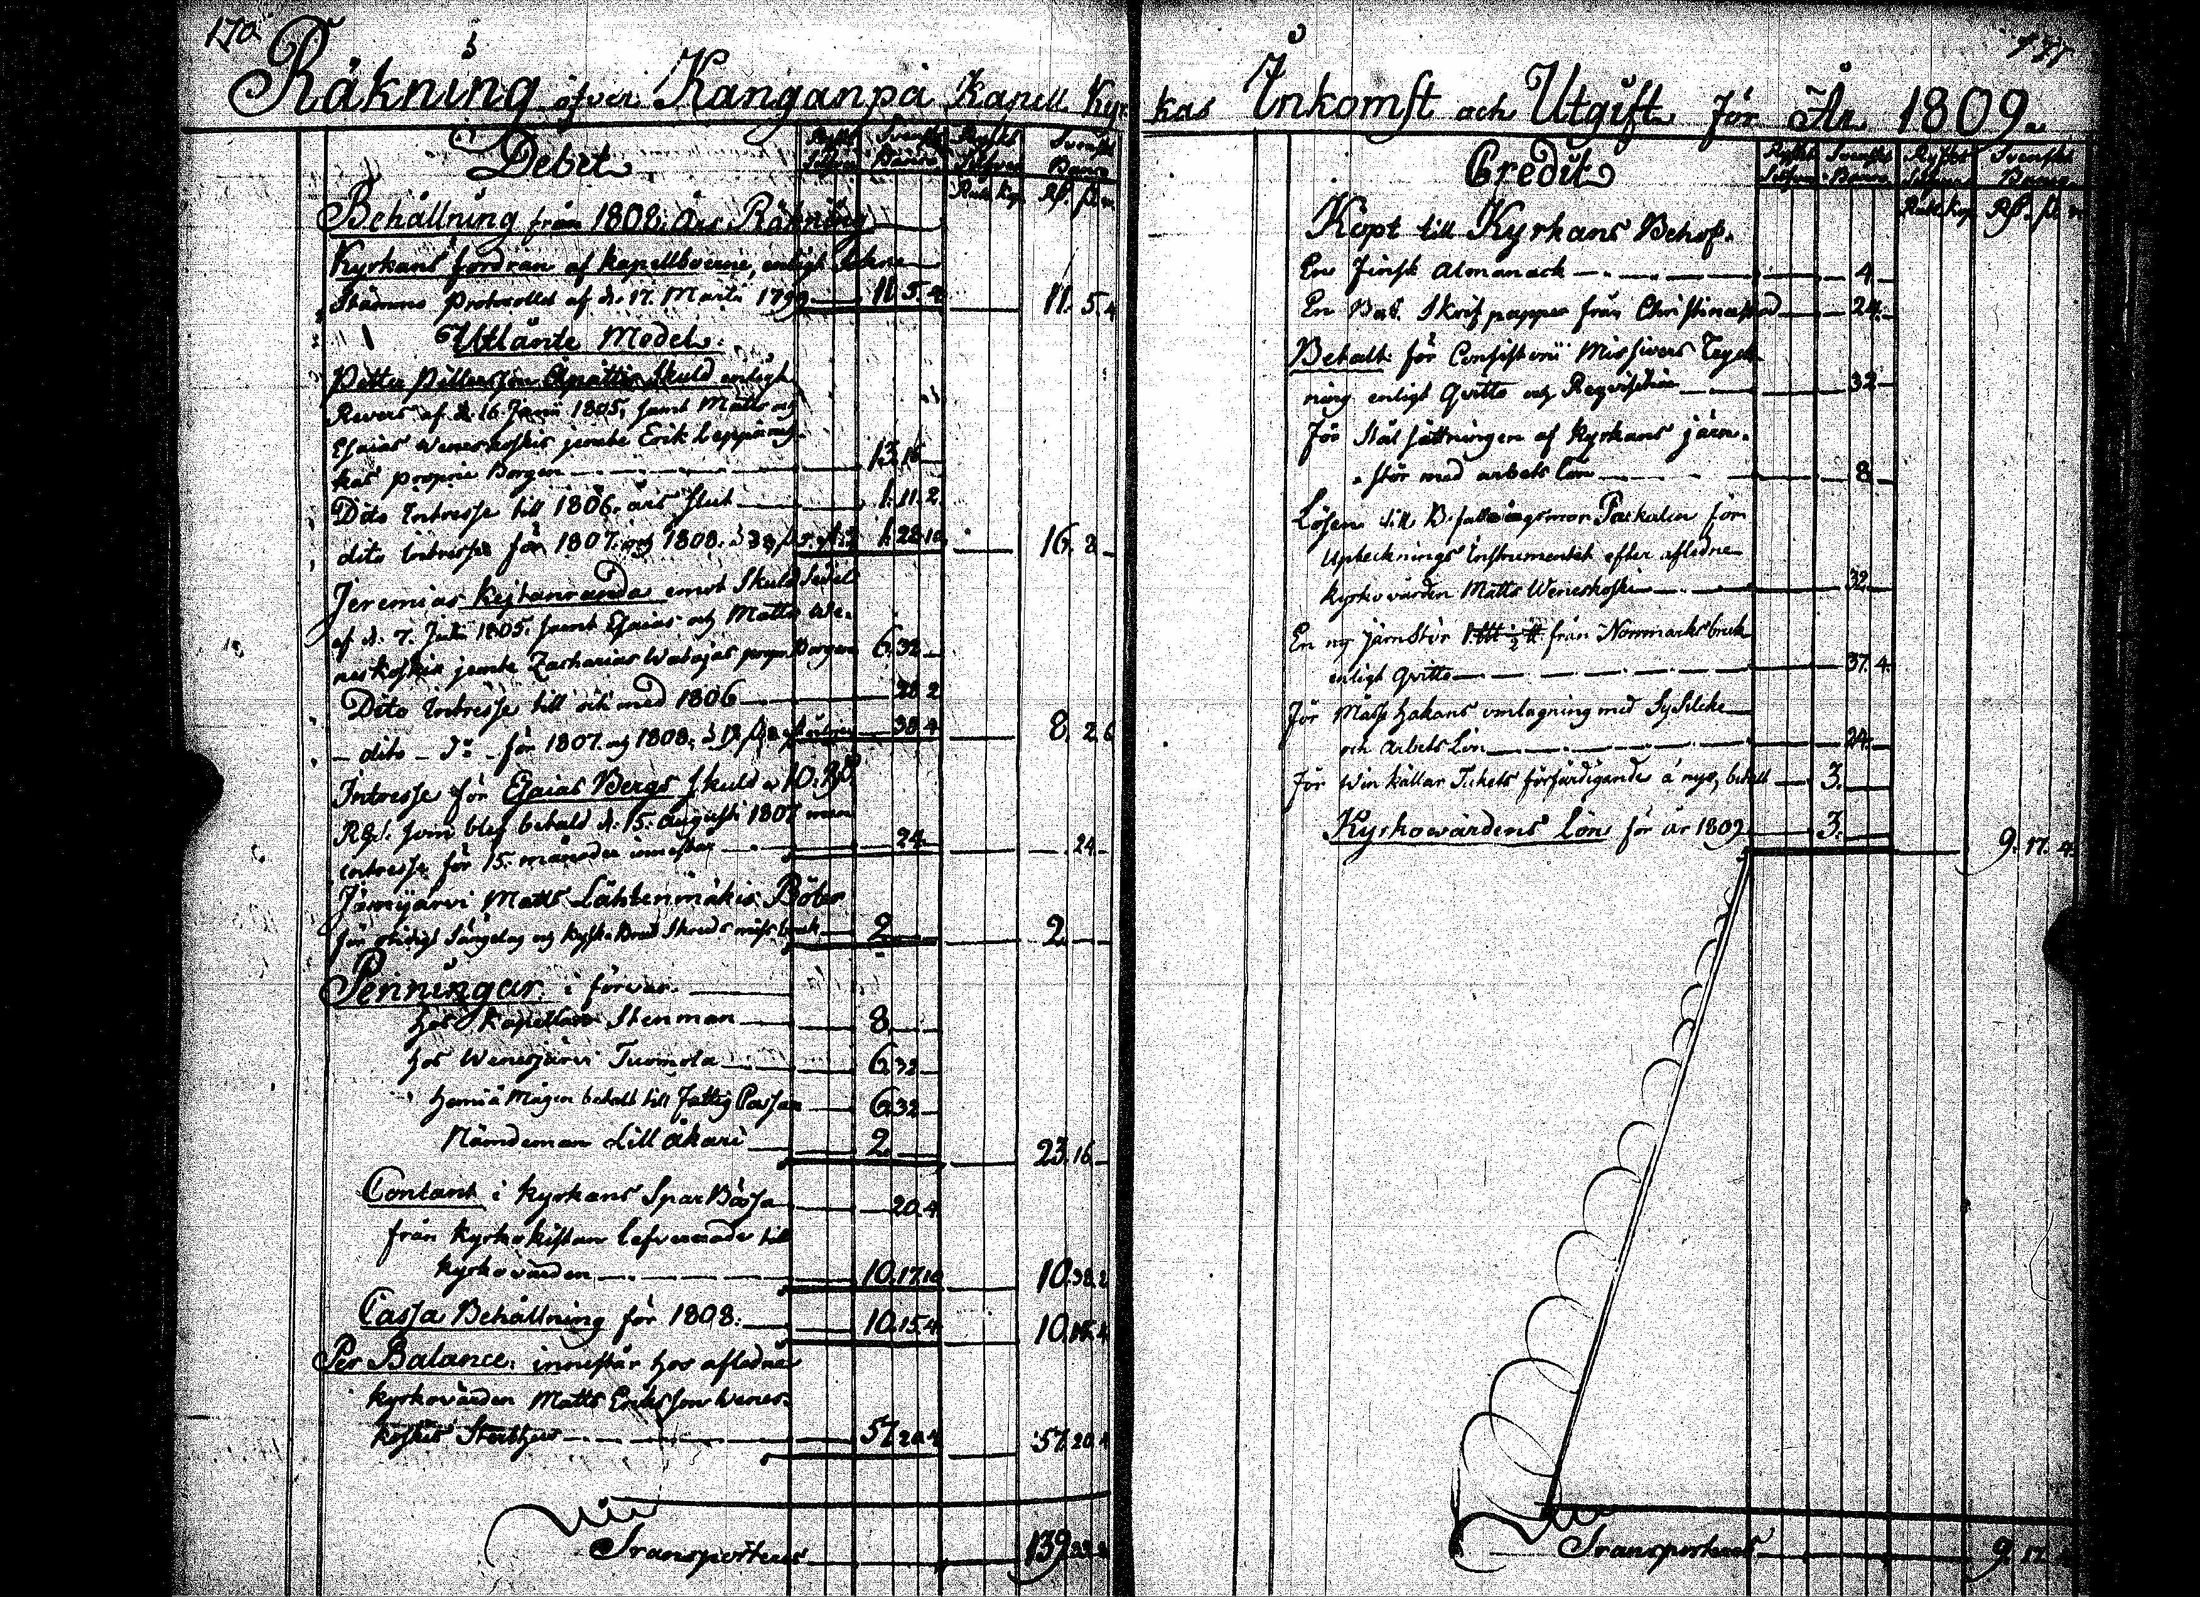 170
Räkning öfver Kanganpä Kapell Kyr
Debet
Ryskt Silfver Svenskt Banco Ryskt Silfver Svenskt Banco
Rub. Kop. Rd. ß. r.
Behållning från 1808. års Räkning
Kyrkans fordran af kapellboerne, enligt Sokne
Stämmo Protocollet af d. 17. Martii 1799 11. 5. 4 11. 5. 4
Utlånte Medel.
Petter Pettersson skuld enligt
Revers af d. 16 Junii 1805, samt Matts och
Esaias Weneskoskis jemte Erik Leppäns
kas proprie Borgen 13 16
Dito Intresse till 1806. års slut 1. 11. 2.
dito Intresse för 1807. och 1808. 1. 28. 10 16. 8
Jeremias Kejtanranda emot Skuld Sedel
af d. 7. Julii 1805. samt Esaias och Matts We-
neskoskis jemte Zacharias Watajas Borgen 6. 32
Dito Intresse till och med 1806 28. 2
dito för 1807. och 1808. 38. 4 8. 2. 6
Intresse för Esaias Bergs skuld 10. Rd.
Rgs. som blef betald d. 15. Augusti 1807 men
intresse för 15. månader innestår 24 24
Jämijärvi Matts Lähtenmäkis Böter
för otidigt Sängelag 2 2
Penningar i förvar.
hos Kapellan Stenman 8
hos Wenesjärvi Tuomola 6. 32
Mågen betalt till Fattig Cassan 6. 32
Nämdeman Lill åkari 2 23. 16
Contant i Kyrkans Spar Bössa 20. 4
från Kyrkokistan lefvererade till
kyrkovärden 10. 17. 10 10. 38. 2
Cassa Behållning för 1808. 10. 15. 4 10. 15. 4
Per Balance. innestår hos afledne
kyrkovärden Matts Eriksson Wenes-
koskis Sterbhus 57. 20. 4 57. 20. 4
Transporteras 139
171
kas Inkomst och Utgift för År 1809.
Credit
Ryskt Silfver Svenskt Banco Ryskt Silfver Svenskt Banco
Rub. Kop. Rd. ß. r.
Köpt till Kyrkans Behof.
En Finsk Almanack 4
En Bok Skrifpapper från Christinestad 24
Betalt för Consistorii Missivers
ning enligt Qvitto och Reqvisition 32
för Stålsättningen af Kyrkans järn-
stör med arbets lön 8
Lösen till Befallningsman Paikalen för
Uptecknings Instrumentet efter aflednе
kyrkovärden Matts Weneskoski 32
En ny järn Stör från Norrmarks bruk
enligt Qvitto 37. 4
För Mäss hakans omlagning med Sysilcke
och arbets Lön 24
För Win källar Tukets förfärdigande å nyo, betalt 3.
Kyrkovärdens Lön för år 1809 3. 9. 17. 4
Transporteras 9. 17